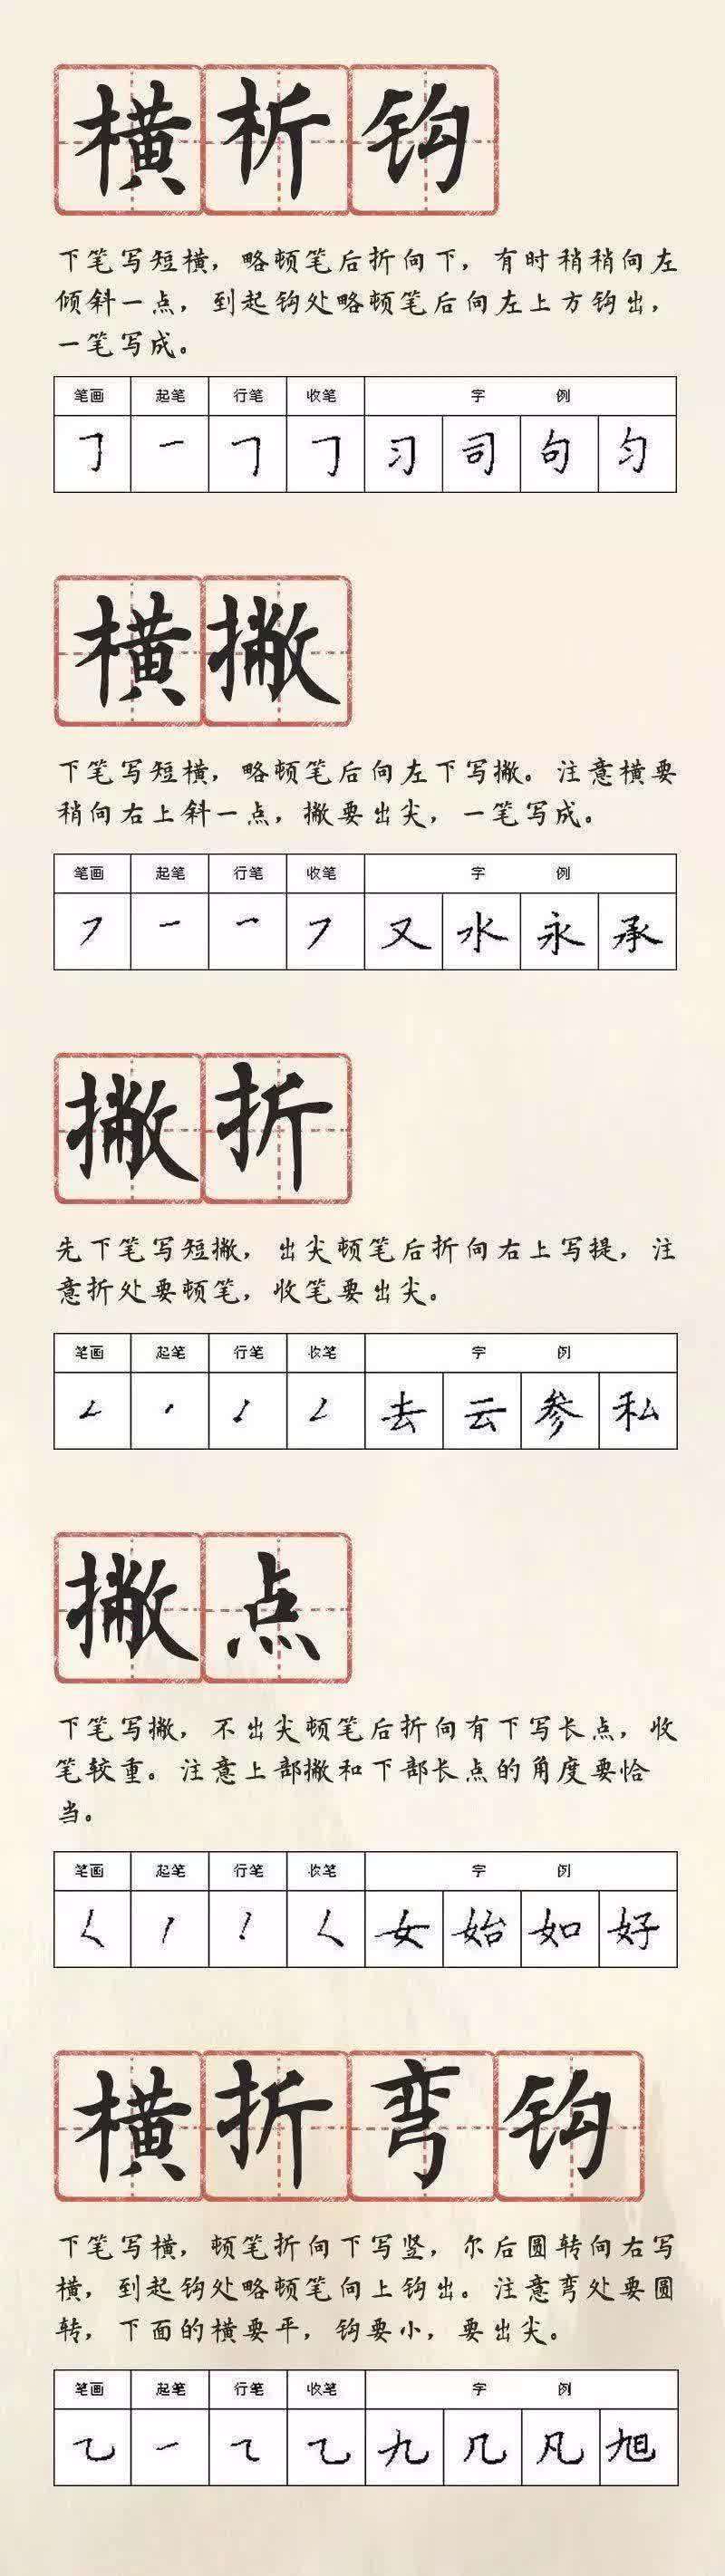 横析钩
下笔写短横，略顿笔后折向下，有时稍稍向左
倾斜一点，到起钩处略顿笔后向左上方钩出，
一笔写成。
笔画 起笔 行笔 收笔 字 例
㇆ 一 ㇆ ㇆ 习 司 句 匀
横撇
下笔写短横，略顿笔后向左下写撇。注意横要
稍向右上斜一点，撇要出尖，一笔写成。
笔画 起笔 行笔 收笔 字 例
㇇ 一 ㇖ ㇇ 又 水 永 承
撇折
先下笔写短撇，出尖顿笔后折向右上写提，注
意折处要顿笔，收笔要出尖。
笔画 起笔 行笔 收笔 字 例
㇜ 丶 ㇜ ㇜ 去 云 参 私
撇点
下笔写撇，不出尖顿笔后折向有下写长点，收
笔较重。注意上部撇和下部长点的角度要恰
当。
笔画 起笔 行笔 收笔 字 例
㇛ 丿 ㇛ 女 始 如 好
横折弯钩
下笔写横，顿笔折向下写竖，尔后圆转向右写
横，到起钩处略顿笔向上钩出。注意弯处要圆
转，下面的横要平，钩要小，要出尖。
笔画 起笔 行笔 收笔 字 例
㇈ 一 ㇍ ㇈ 九 几 凡 旭